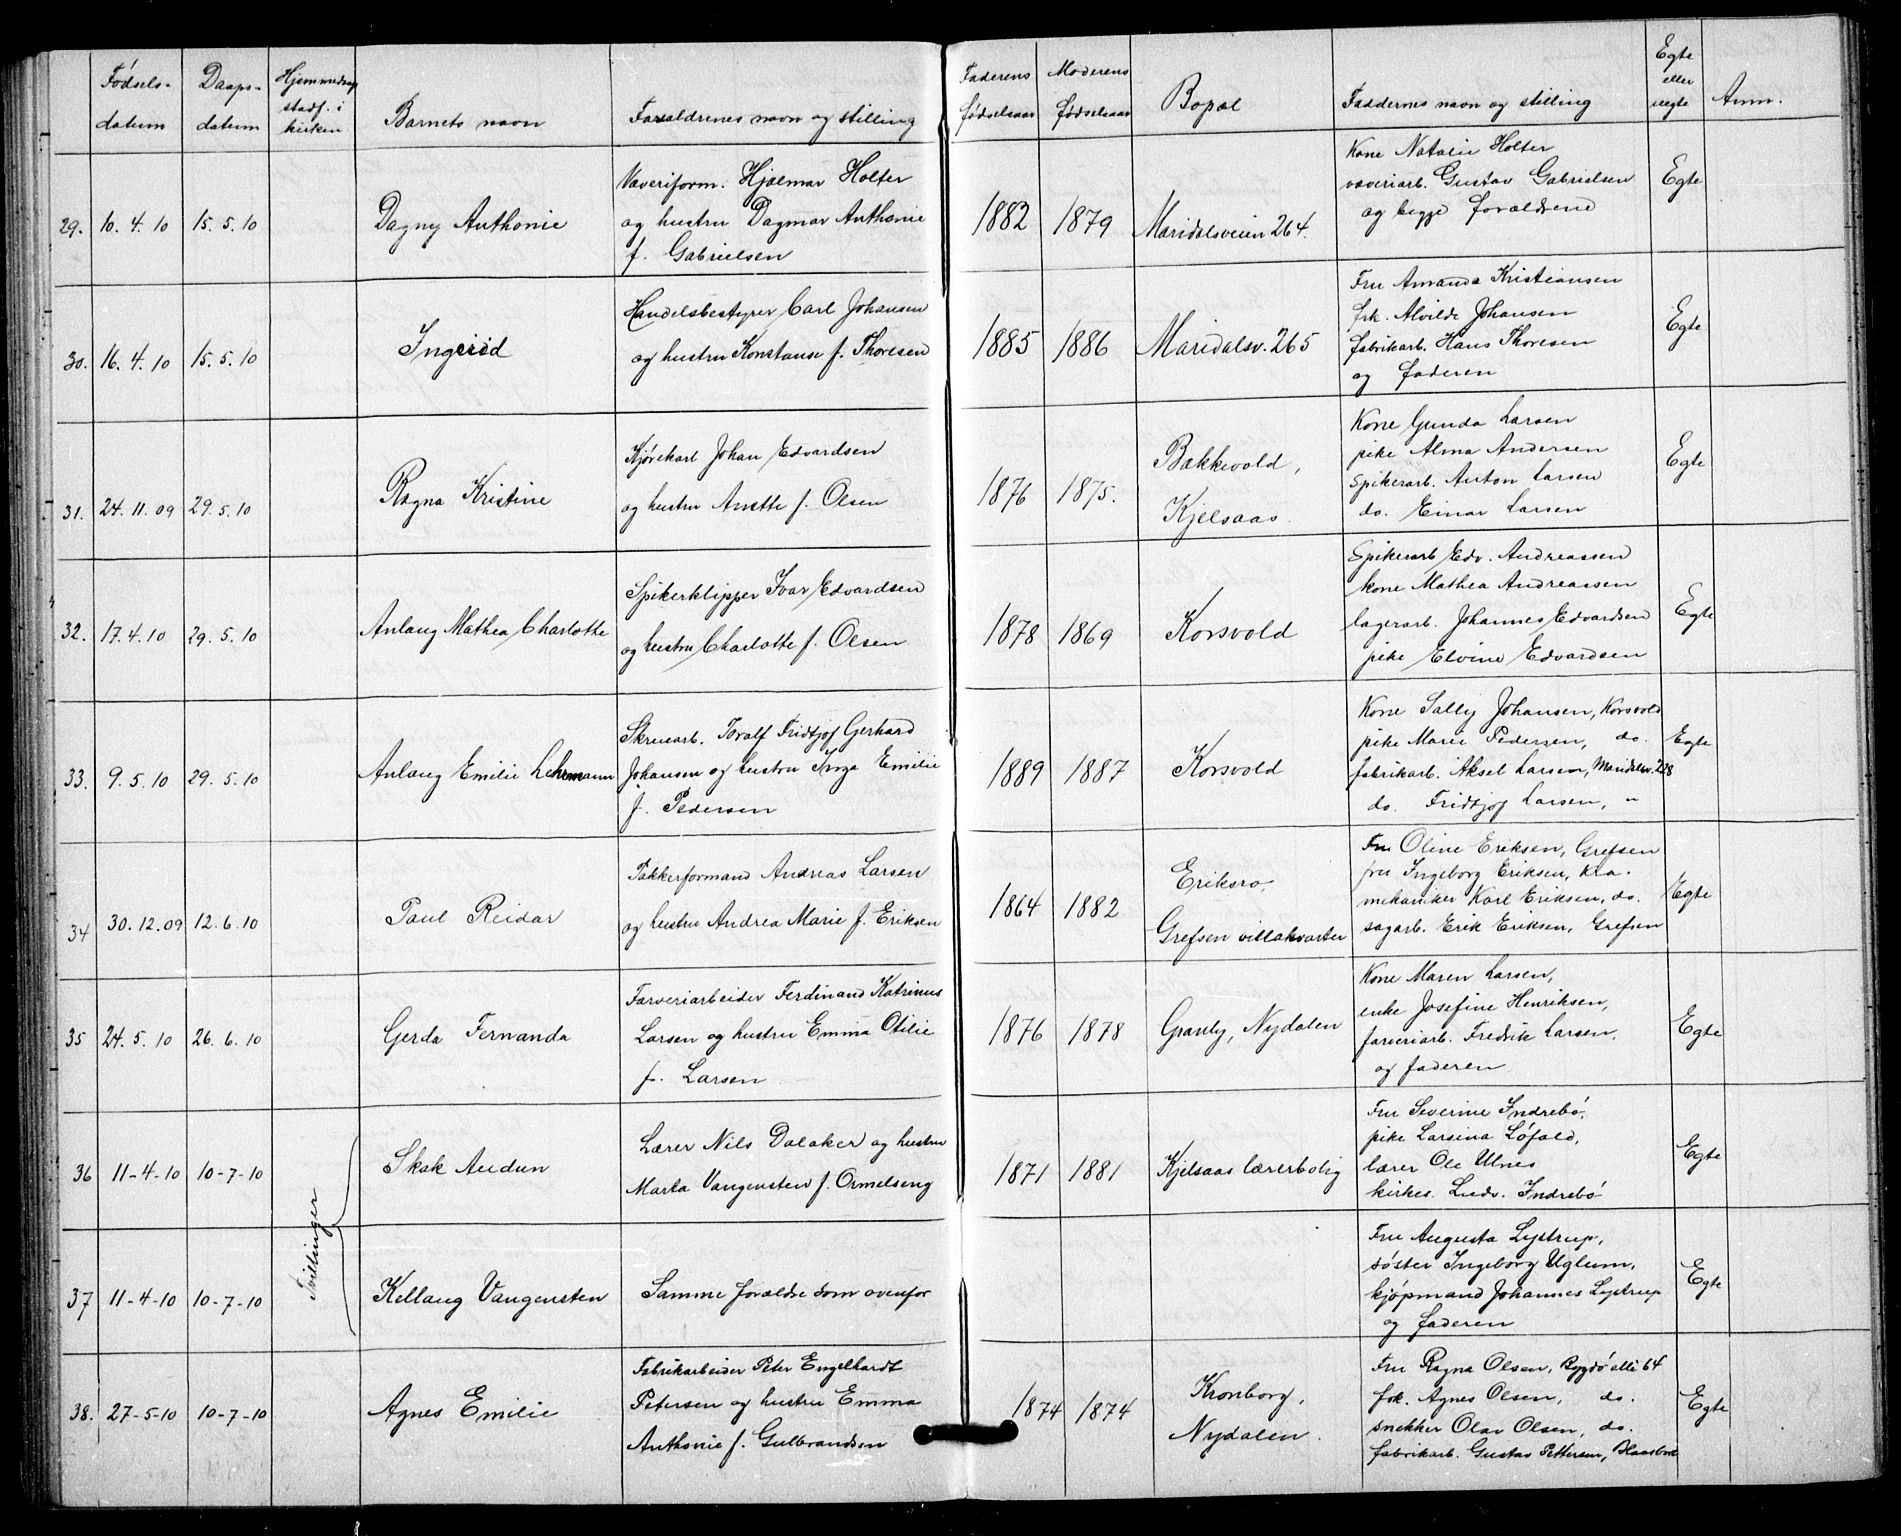 Fødsels-
datum
Daaps-
datum
Hjemmedaap
stadf. i
kirken
Barnets navn
Forældrenes navn og stilling
Faderens
fødselsaar
Moderens
fødselsaar
Bopæl
Faddernes navn og stilling
Egte
eller
uegte
Anm.
29. 10. 4. 10 15. 5. 10
Dagny Anthonie
Væveriform. Hjalmar Holter
og hustru Dagmar Anthonie
f. Gabrielsen
1882 1879 Maridalsveien 264.
Kone Natalie Holter
væveriarb. Gustav Gabrielsen
og begge forældrene
Egte
30. 16. 4. 10 15. 5. 10
Ingerid
Handelsbestyrer Carl Johansen
og hustru Konstanse f. Thoresen
1885 1886 Maridalsv. 265
Fru Amanda Kristiansen
frk. Alvilde Johansen
fabrikarb. Hans Thoresen
og faderen
Egte
31. 24. 11. 09 29. 5. 10
Ragna Kristine
Kjørekarl Johan Edvardsen
og hustru Anette f. Olsen
1876 1875.
Bakkevold,
Kjelsaas.
Kone Gunda Larsen
pike Alma Andersen
spikerarb. Anton Larsen
do. Einar Larsen
Egte
32. 17. 4. 10 29. 5. 10
Anlaug Mathea Charlotte
Spikerklipper Ivar Edvardsen
og hustru Charlotte f. Olsen
1878 1869 Korsvold
Spikerarb Edv. Andreassen
kone Mathea Andreassen
lagerarb. Johannes Edvardsen
pike Elvine Edvardsen
Egte
33. 9. 5. 10 29. 5. 10
Anlaug Emilie Lehrmann
Skruearb. Toralf Fridtjof Gerhard
Johansen og hustru Inga Emilie
f. Pedersen
1889 1887 Korsvold
Kone Sally Johansen, Korsvold
pike Marie Pedersen, do.
fabrikarb. Aksel Larsen, Maridalsv. 228
do. Fridtjof Larsen, "
Egte
34 30. 12. 09 12. 6. 10
Paul Reidar
Pakkerformand Andreas Larsen
og hustru Andrea Marie f. Eriksen
1864 1882
Eriksro,
Grefsen villakvarter
Fru Oline Eriksen, Grefsen
fru Ingeborg Eriksen, Kra.
mekaniker Karl Eriksen, do.
sagarb. Erik Eriksen, Grefsen
Egte
35 24. 5. 10 26. 6. 10
Gerda Fernanda
Farveriarbeider Ferdinand Katrinus
Larsen og hustru Emma Otilie
f. Larsen
1876 1878 Granly, Nydalen
Kone Maren Larsen,
enke Josefine Henriksen,
farveriarb. Fredrik Larsen,
og faderen
Egte
36 11-4-10 10-7-10
Tvillinger
Skak Audun
Lærer Nils Dalaker og hustru
Marta Vangensten f. Ormelseng
1871 1881 Kjelsaas lærerbolig
Fru Severine Indrebø,
pike Larsina Løfald,
lærer Ole Ulnes
kirkes. Ludv. Indrebø
Egte
37 11-4-10 10-7-10
Kellaug Vangensten
Samme forældre som ovenfor
Fru Augusta Lystrup,
søster Ingeborg Uglum,
kjøpmand Johannes Lystrup
og faderen
Egte
38. 27-5-10 10-7-10
Agnes Emilie
Fabrikarbeider Peter Engelhardt
Petersen og hustru Emma
Anthonie f. Gulbrandsen
1874 1874
Kronborg,
Nydalen.
Fru Ragna Olsen, Bygdø allé 64
frk. Agnes Olsen, do.
snekker Olav Olsen, do.
fabrikarb. Gustav Pettersen,
Egte